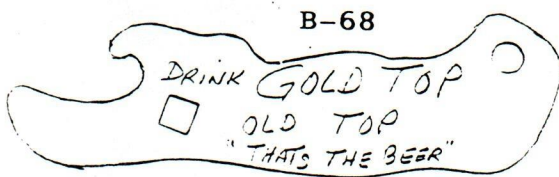 B-68
DRINK GOLD TOP
OLD TOP
"THATS THE BEER"